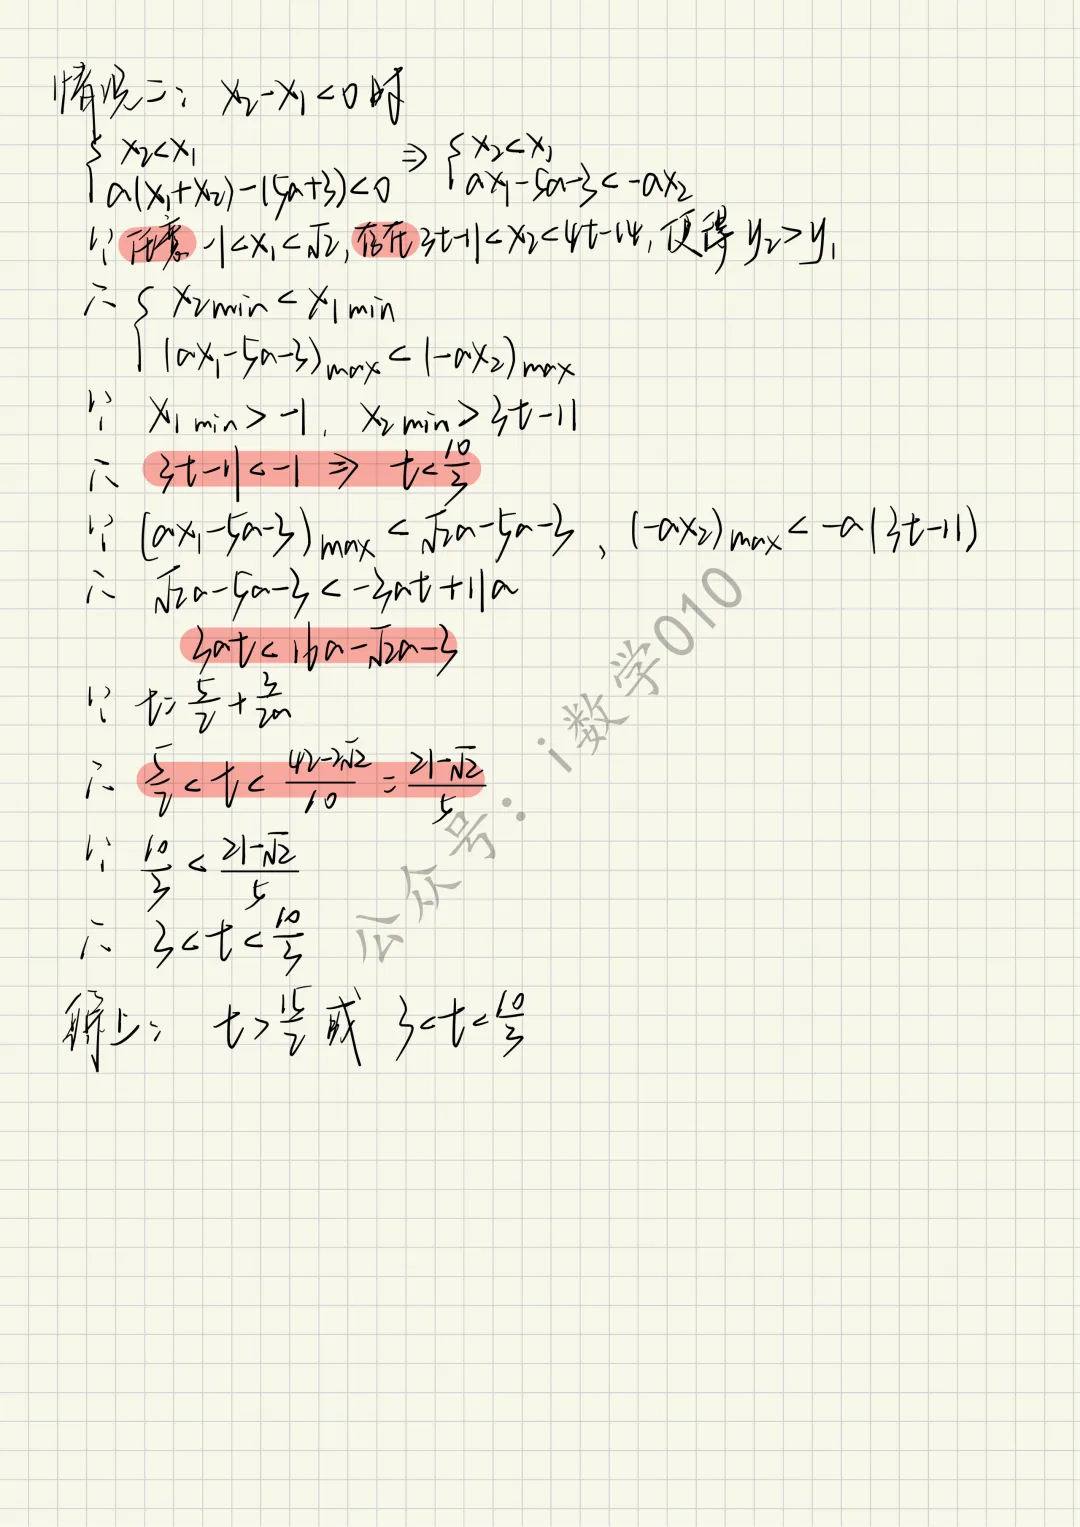 情况二: x₂-x₁<0时
{ x₂<x₁ ⇒ { x₂<x₁
a(x₁+x₂)-(5a+3)<0 ax₁-5a-3<-ax₂
∵ 任意 -1<x₁<√2, 存在 3t-11<x₂<4t-14, 使得 y₂>y₁
∴ { x₂min<x₁min
(ax₁-5a-3)max<(-ax₂)max
∵ x₁min>-1, x₂min>3t-11
∴ 3t-11<-1 ⇒ t<10/3
∵ (ax₁-5a-3)max<√2a-5a-3, (-ax₂)max<-a(3t-11)
∴ √2a-5a-3<-3at+11a
3at<16a-√2a-3
∵ t=5/2+3/2a
∴ 5/2<t<(42-2√2)/10=(21-√2)/5
∵ 10/3<(21-√2)/5
∴ 3<t<10/3
综上: t>15/2 或 3<t<10/3
公众号：i数学010